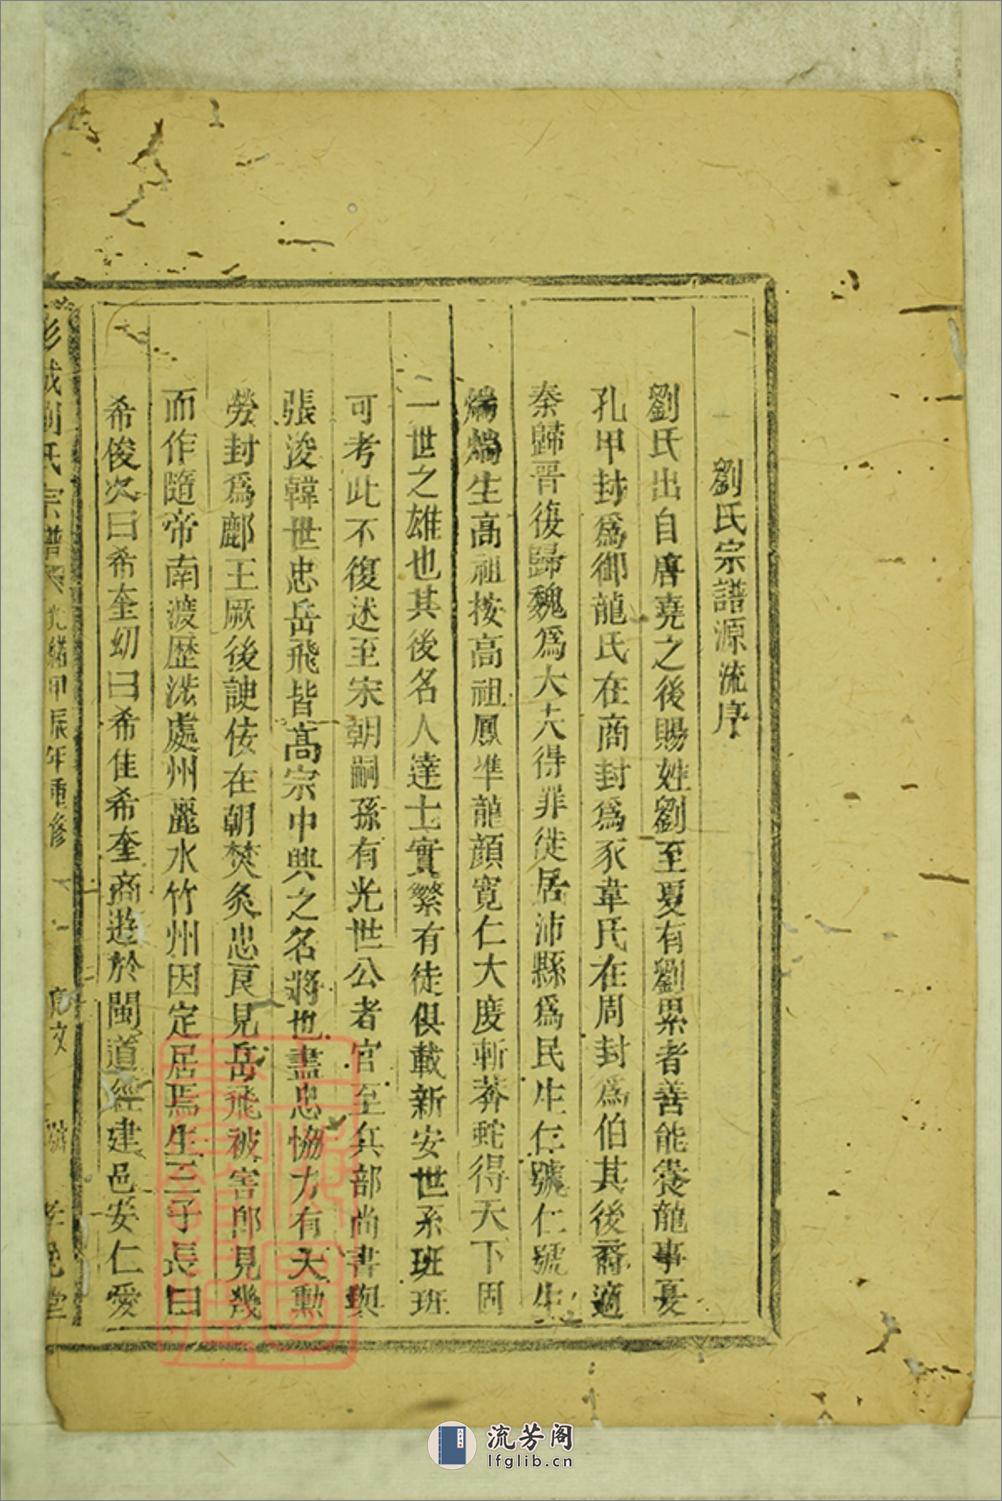 劉氏宗譜源流序
劉氏出自唐堯之後賜姓劉至夏有劉累者善能養龍事夏
孔甲封爲御龍氏在商封爲豕韋氏在周封爲伯其後裔適
秦歸晋復歸魏爲大夫得罪徙居沛縣爲民生仁號仁號生
煓煓生高祖按高祖鳳準龍顔寬仁大度斬莽蛇得天下固
一世之雄也其後名人達士實繁有徒俱載新安世系班班
可考此不復述至宋朝嗣孫有光世公者官至兵部尚書與
張浚韓世忠岳飛皆高宗中興之名將也盡忠恊力有大勲
勞封爲鄜王厥後諛佞在朝焚炙忠良見岳飛被害郎見幾
而作隨帝南渡歴涖處州麗水竹州因定居焉生三子長曰
希俊次曰希奎幼曰希佳希奎商遊於閩道經建邑安仁愛
彭城劉氏宗譜 光緒甲辰年重修
流芳阁
lfglib.cn